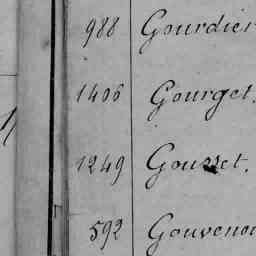 988 Gourdier
1406 Gourget.
1249 Gousset.
592